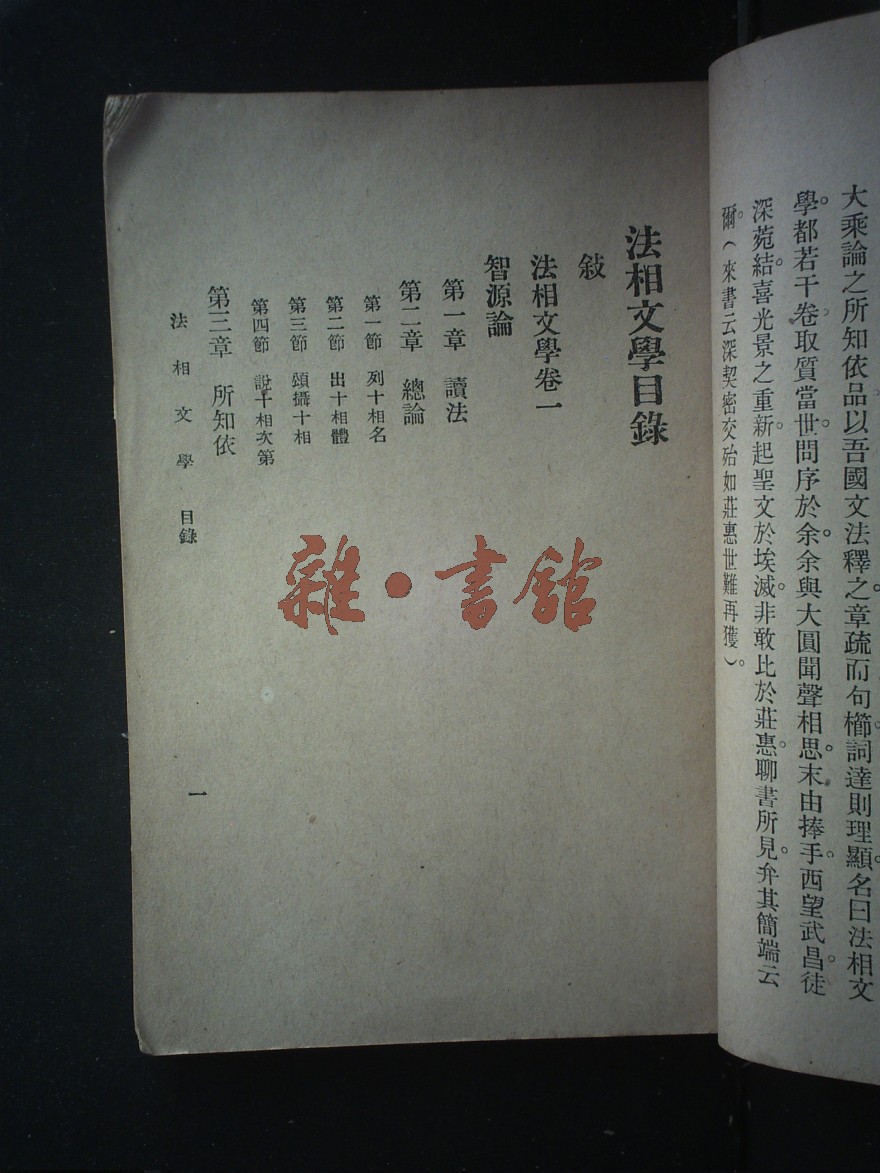 大乘論之所知依品以吾國文法釋之章疏而句櫛詞達則理顯名曰法相文
學都若干卷取質當世問序於余余與大圓聞聲相思末由捧手西望武昌徒
深菀結喜光景之重新起聖文於埃滅非敢比於莊惠聊書所見弁其簡端云
爾(來書云深契密交殆如莊惠世難再獲)。
法相文學目錄
敍
法相文學卷一
智源論
第一章 讀法
第二章 總論
第一節 列十相名
第二節 出十相體
第三節 頌攝十相
第四節 說十相次第
第三章 所知依
法相文學 目錄
一
雜·書館